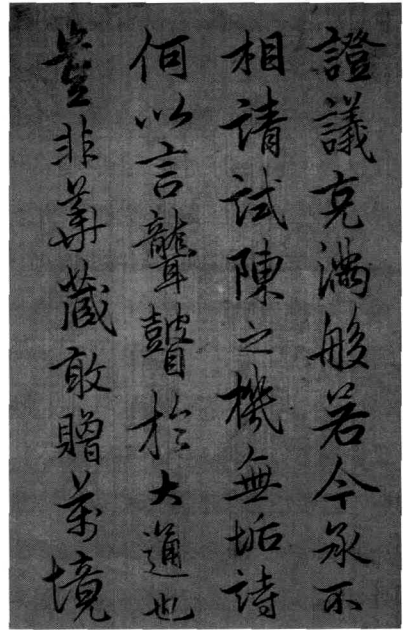 證議充滿般若今承不
相請試陳之機無垢詩
何以言聾瞽於大道也
豈非華藏敢贈萬境